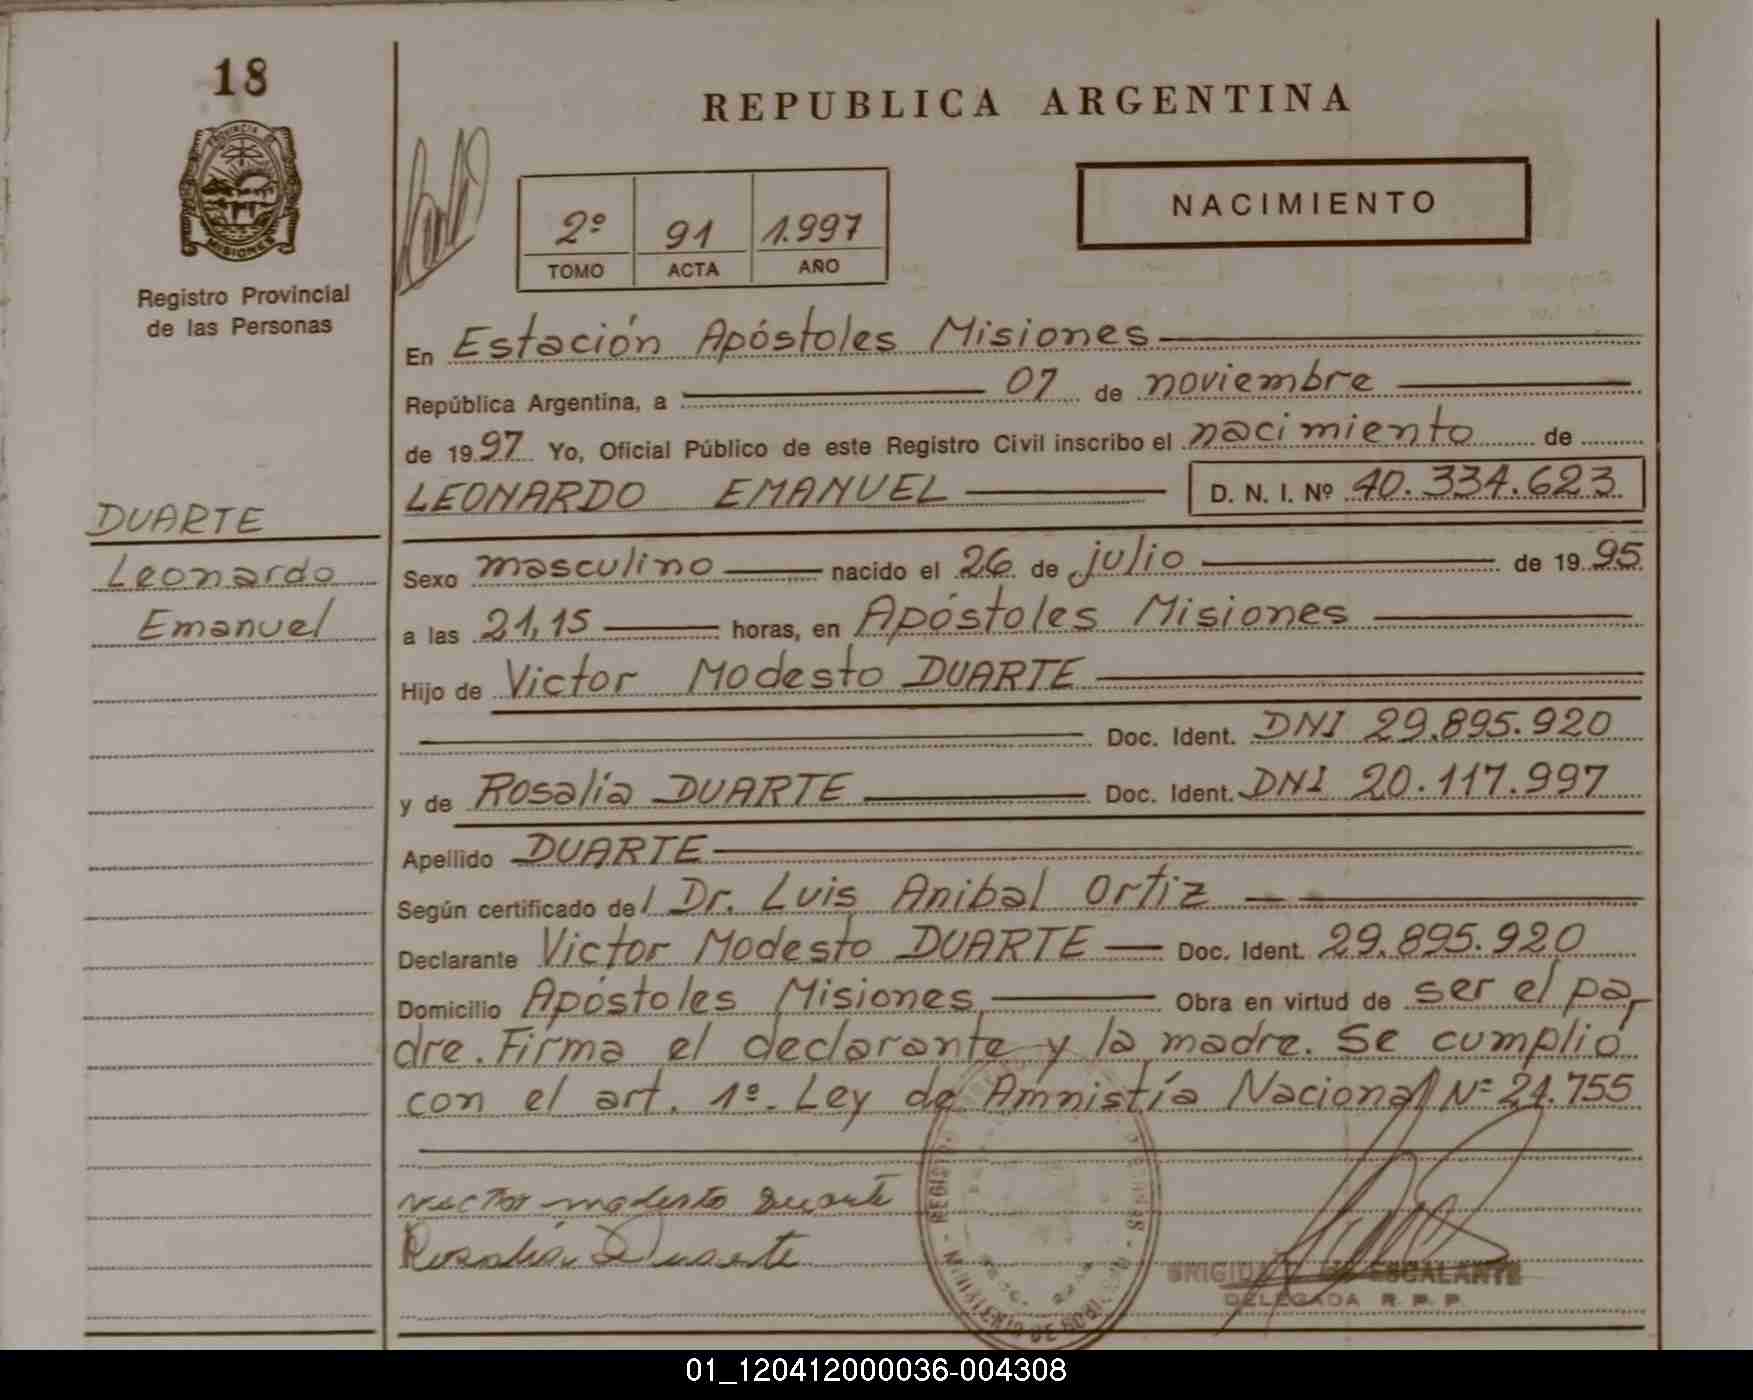 18
REPUBLICA ARGENTINA
PROVINCIA DE
MISIONES
Registro Provincial
de las Personas
2º 91 1.997
TOMO ACTA AÑO
NACIMIENTO
En Estación Apóstoles Misiones
República Argentina, a 07 de noviembre
de 1997 Yo, Oficial Público de este Registro Civil inscribo el nacimiento de
LEONARDO EMANUEL D. N. I. Nº 40.334.623
DUARTE
Leonardo
Emanuel
Sexo masculino nacido el 26 de julio de 1995
a las 21,15 horas, en Apóstoles Misiones
Hijo de Victor Modesto DUARTE
Doc. Ident. DNI 29.895.920
y de Rosalía DUARTE Doc. Ident. DNI 20.117.997
Apellido DUARTE
Según certificado del Dr. Luis Anibal Ortiz
Declarante Victor Modesto DUARTE Doc. Ident. 29.895.920
Domicilio Apóstoles Misiones Obra en virtud de ser el pa-
dre. Firma el declarante y la madre. Se cumplió
con el art. 1º. Ley de Amnistía Nacional Nº 24.755
Victor modesto Duarte
Rosalia Duarte
ESCALANTE
DELEGADA R. P. P.
MINISTERIO DE GOB
01_120412000036-004308